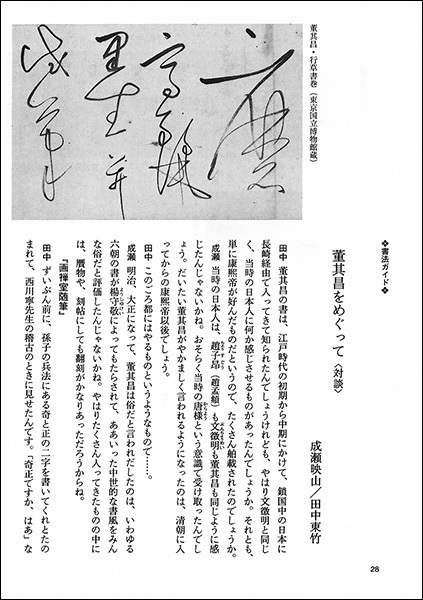 ❖書法ガイド❖
董其昌をめぐって〈対談〉
成瀬映山/田中東竹
董其昌・行草書巻(東京国立博物館蔵)
田中 董其昌の書は、江戸時代の初期から中期にかけて、鎖国中の日本に
長崎経由で入ってきて知られたんでしょうけれども、やはり文徴明と同じ
く、当時の日本人に何か感じさせるものがあったんでしょうか。それとも、
単に康熙帝が好んだものだというので、たくさん舶載されたのでしょうか。
成瀬 当時の日本人は、趙子昂(趙孟頫)も文徴明も董其昌も同じように感
じたんじゃないかね。おそらく当時の唐様という意識で受け取ったんでし
ょう。だいたい董其昌がやかましく言われるようになったのは、清朝に入
ってからの康熙帝以後でしょう。
田中 このごろ都にはやるものというようなもので……。
成瀬 明治、大正になって、董其昌は俗だと言われだしたのは、いわゆる
六朝の書が楊守敬によってもたらされて、ああいった中世的な書風をみん
な俗だと評価したんじゃないかね。やはりたくさん入ってきたものの中に
は、贋物や、刻帖にしても翻刻がかなりあっただろうからね。
『画禅室随筆』
田中 ずいぶん前に、孫子の兵法にある奇と正の二字を書いてくれとたの
まれて、西川寧先生の稽古のときに見せたんです。「奇正ですか、はあ」な
28